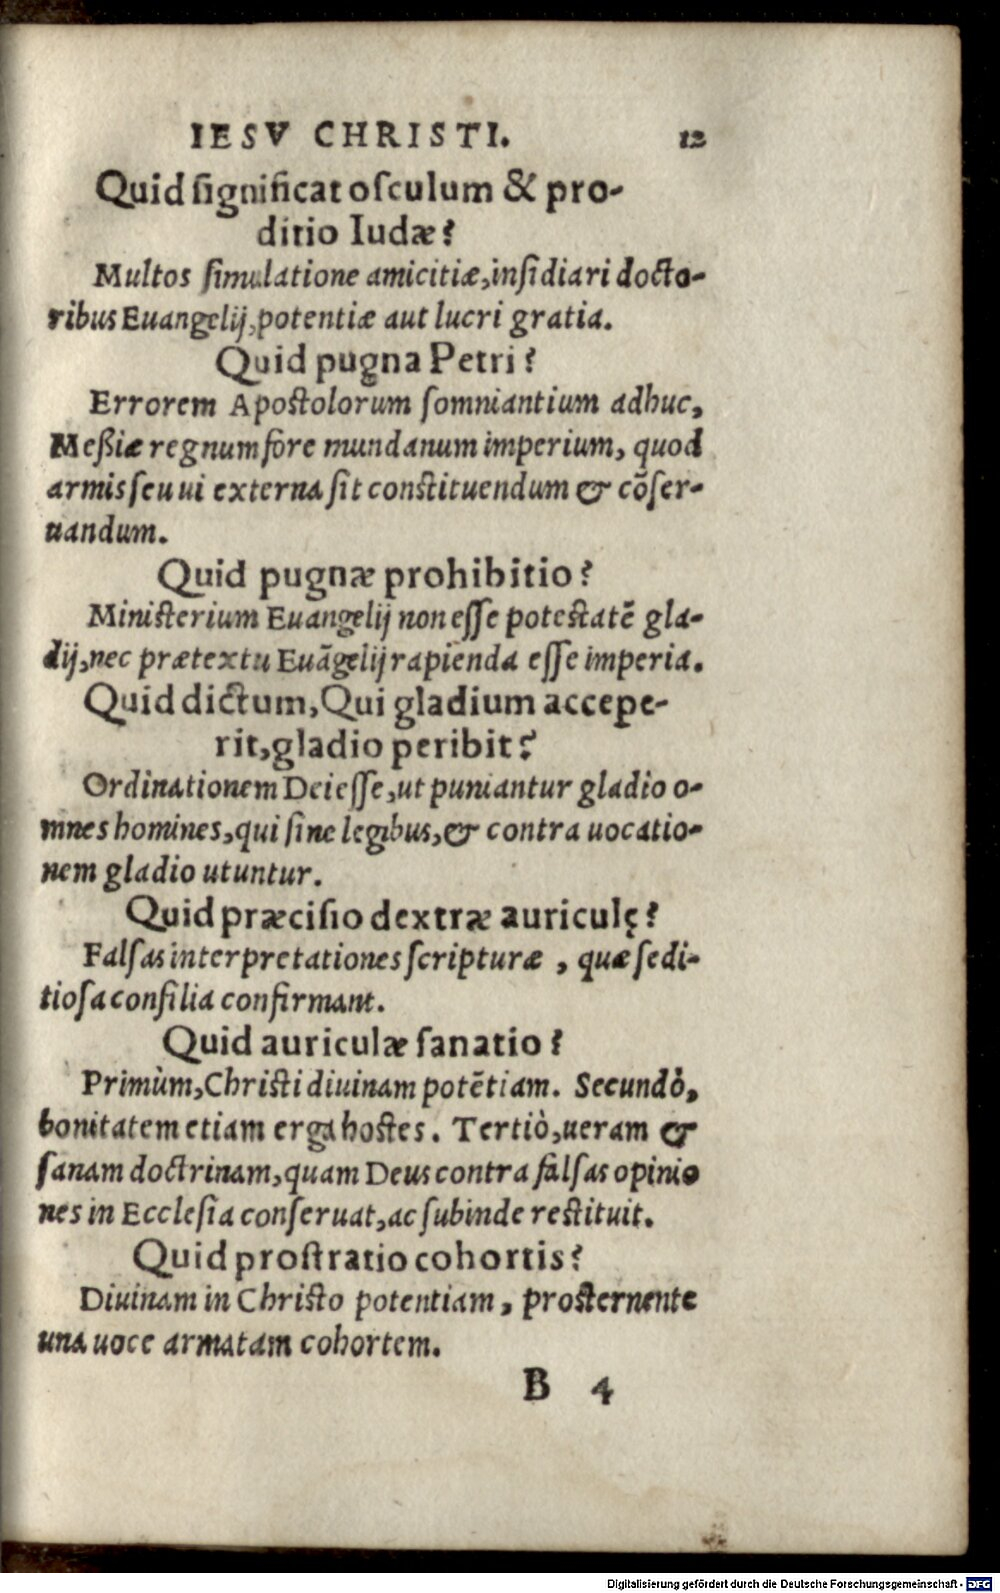 IESV CHRISTI. 12
Quid significat osculum & pro-
ditio Iudæ?
Multos simulatione amicitiæ, insidiari docto-
ribus Euangelij, potentiæ aut lucri gratia.
Quid pugna Petri?
Errorem Apostolorum somniantium adhuc,
Meßiæ regnum fore mundanum imperium, quod
armis seu ui externa sit constituendum & cõser-
uandum.
Quid pugnæ prohibitio?
Ministerium Euangelij non esse potestatẽ gla-
dij, nec prætextu Euãgelij rapienda esse imperia.
Quid dictum, Qui gladium accepe-
rit, gladio peribit?
Ordinationem Dei esse, ut puniantur gladio o-
mnes homines, qui sine legibus, & contra uocatio-
nem gladio utuntur.
Quid præcisio dextræ auriculę?
Falsas interpretationes scripturæ, quæ sedi-
tiosa consilia confirmant.
Quid auriculæ sanatio?
Primùm, Christi diuinam potẽtiam. Secundò,
bonitatem etiam erga hostes. Tertiò, ueram &
sanam doctrinam, quam Deus contra falsas opinio
nes in Ecclesia conseruat, ac subinde restituit.
Quid prostratio cohortis?
Diuinam in Christo potentiam, prosternente
una uoce armatam cohortem.
B 4
Digitalisierung gefördert durch die Deutsche Forschungsgemeinschaft - DFG